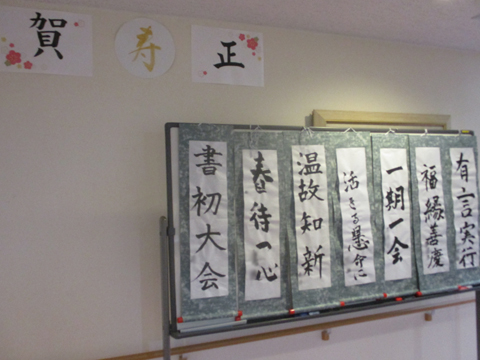 正寿賀
有言実行
福縁善慶
一期一会
活きる懸命に
温故知新
春待つ心
書初大会